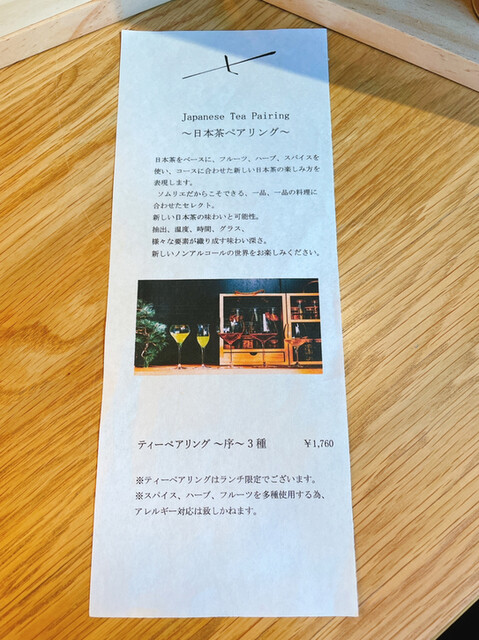 Japanese Tea Pairing
～日本茶ペアリング～
日本茶をベースに、フルーツ、ハーブ、スパイスを
使い、コースに合わせた新しい日本茶の楽しみ方を
表現します。
ソムリエだからこそできる、一品、一品の料理に
合わせたセレクト。
新しい日本茶の味わいと可能性。
抽出、温度、時間、グラス、
様々な要素が織り成す味わい深さ。
新しいノンアルコールの世界をお楽しみください。
ティーペアリング ～序～３種 ￥1,760
※ティーペアリングはランチ限定でございます。
※スパイス、ハーブ、フルーツを多種使用する為、
アレルギー対応は致しかねます。